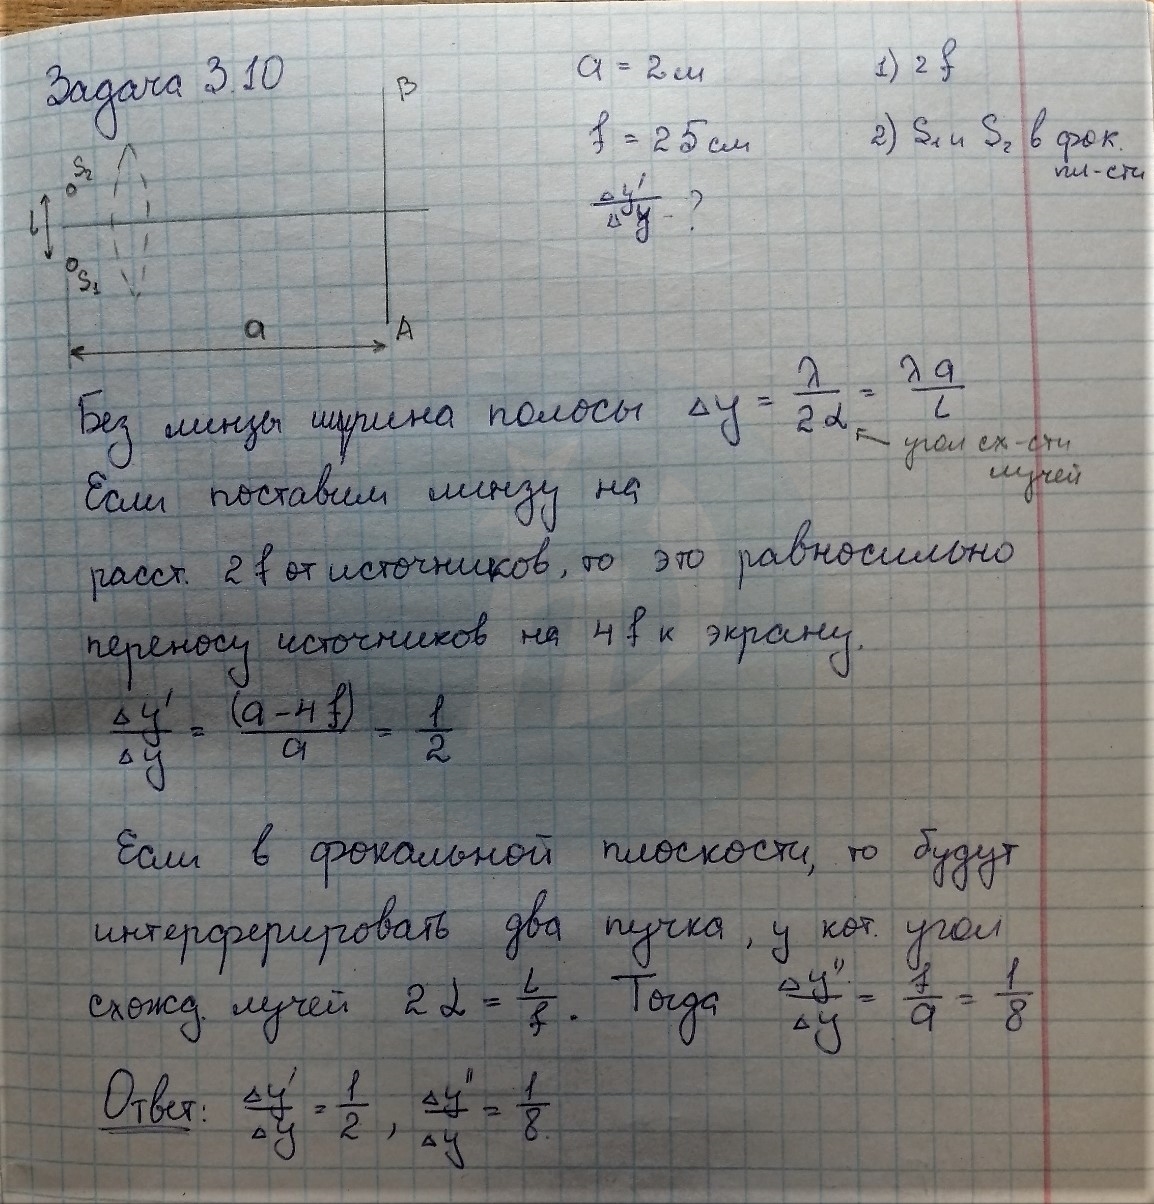 Задача 3.10
a = 2м
1) 2f
f = 25см
2) S₁ и S₂ в фок. пл-сти
Δy'/Δy - ?
S₂
S₁
L
a
B
A
Без линзы ширина полосы Δy = λ/2α = λa/L
угол сх-сти лучей
Если поставим линзу на
расст. 2f от источников, то это равносильно
переносу источников на 4f к экрану.
Δy'/Δy = (a-4f)/a = 1/2
Если в фокальной плоскости, то будут
интерферировать два пучка, у кот. угол
схожд. лучей 2α = L/f. Тогда Δy''/Δy = f/a = 1/8
Ответ: Δy'/Δy = 1/2, Δy''/Δy = 1/8.